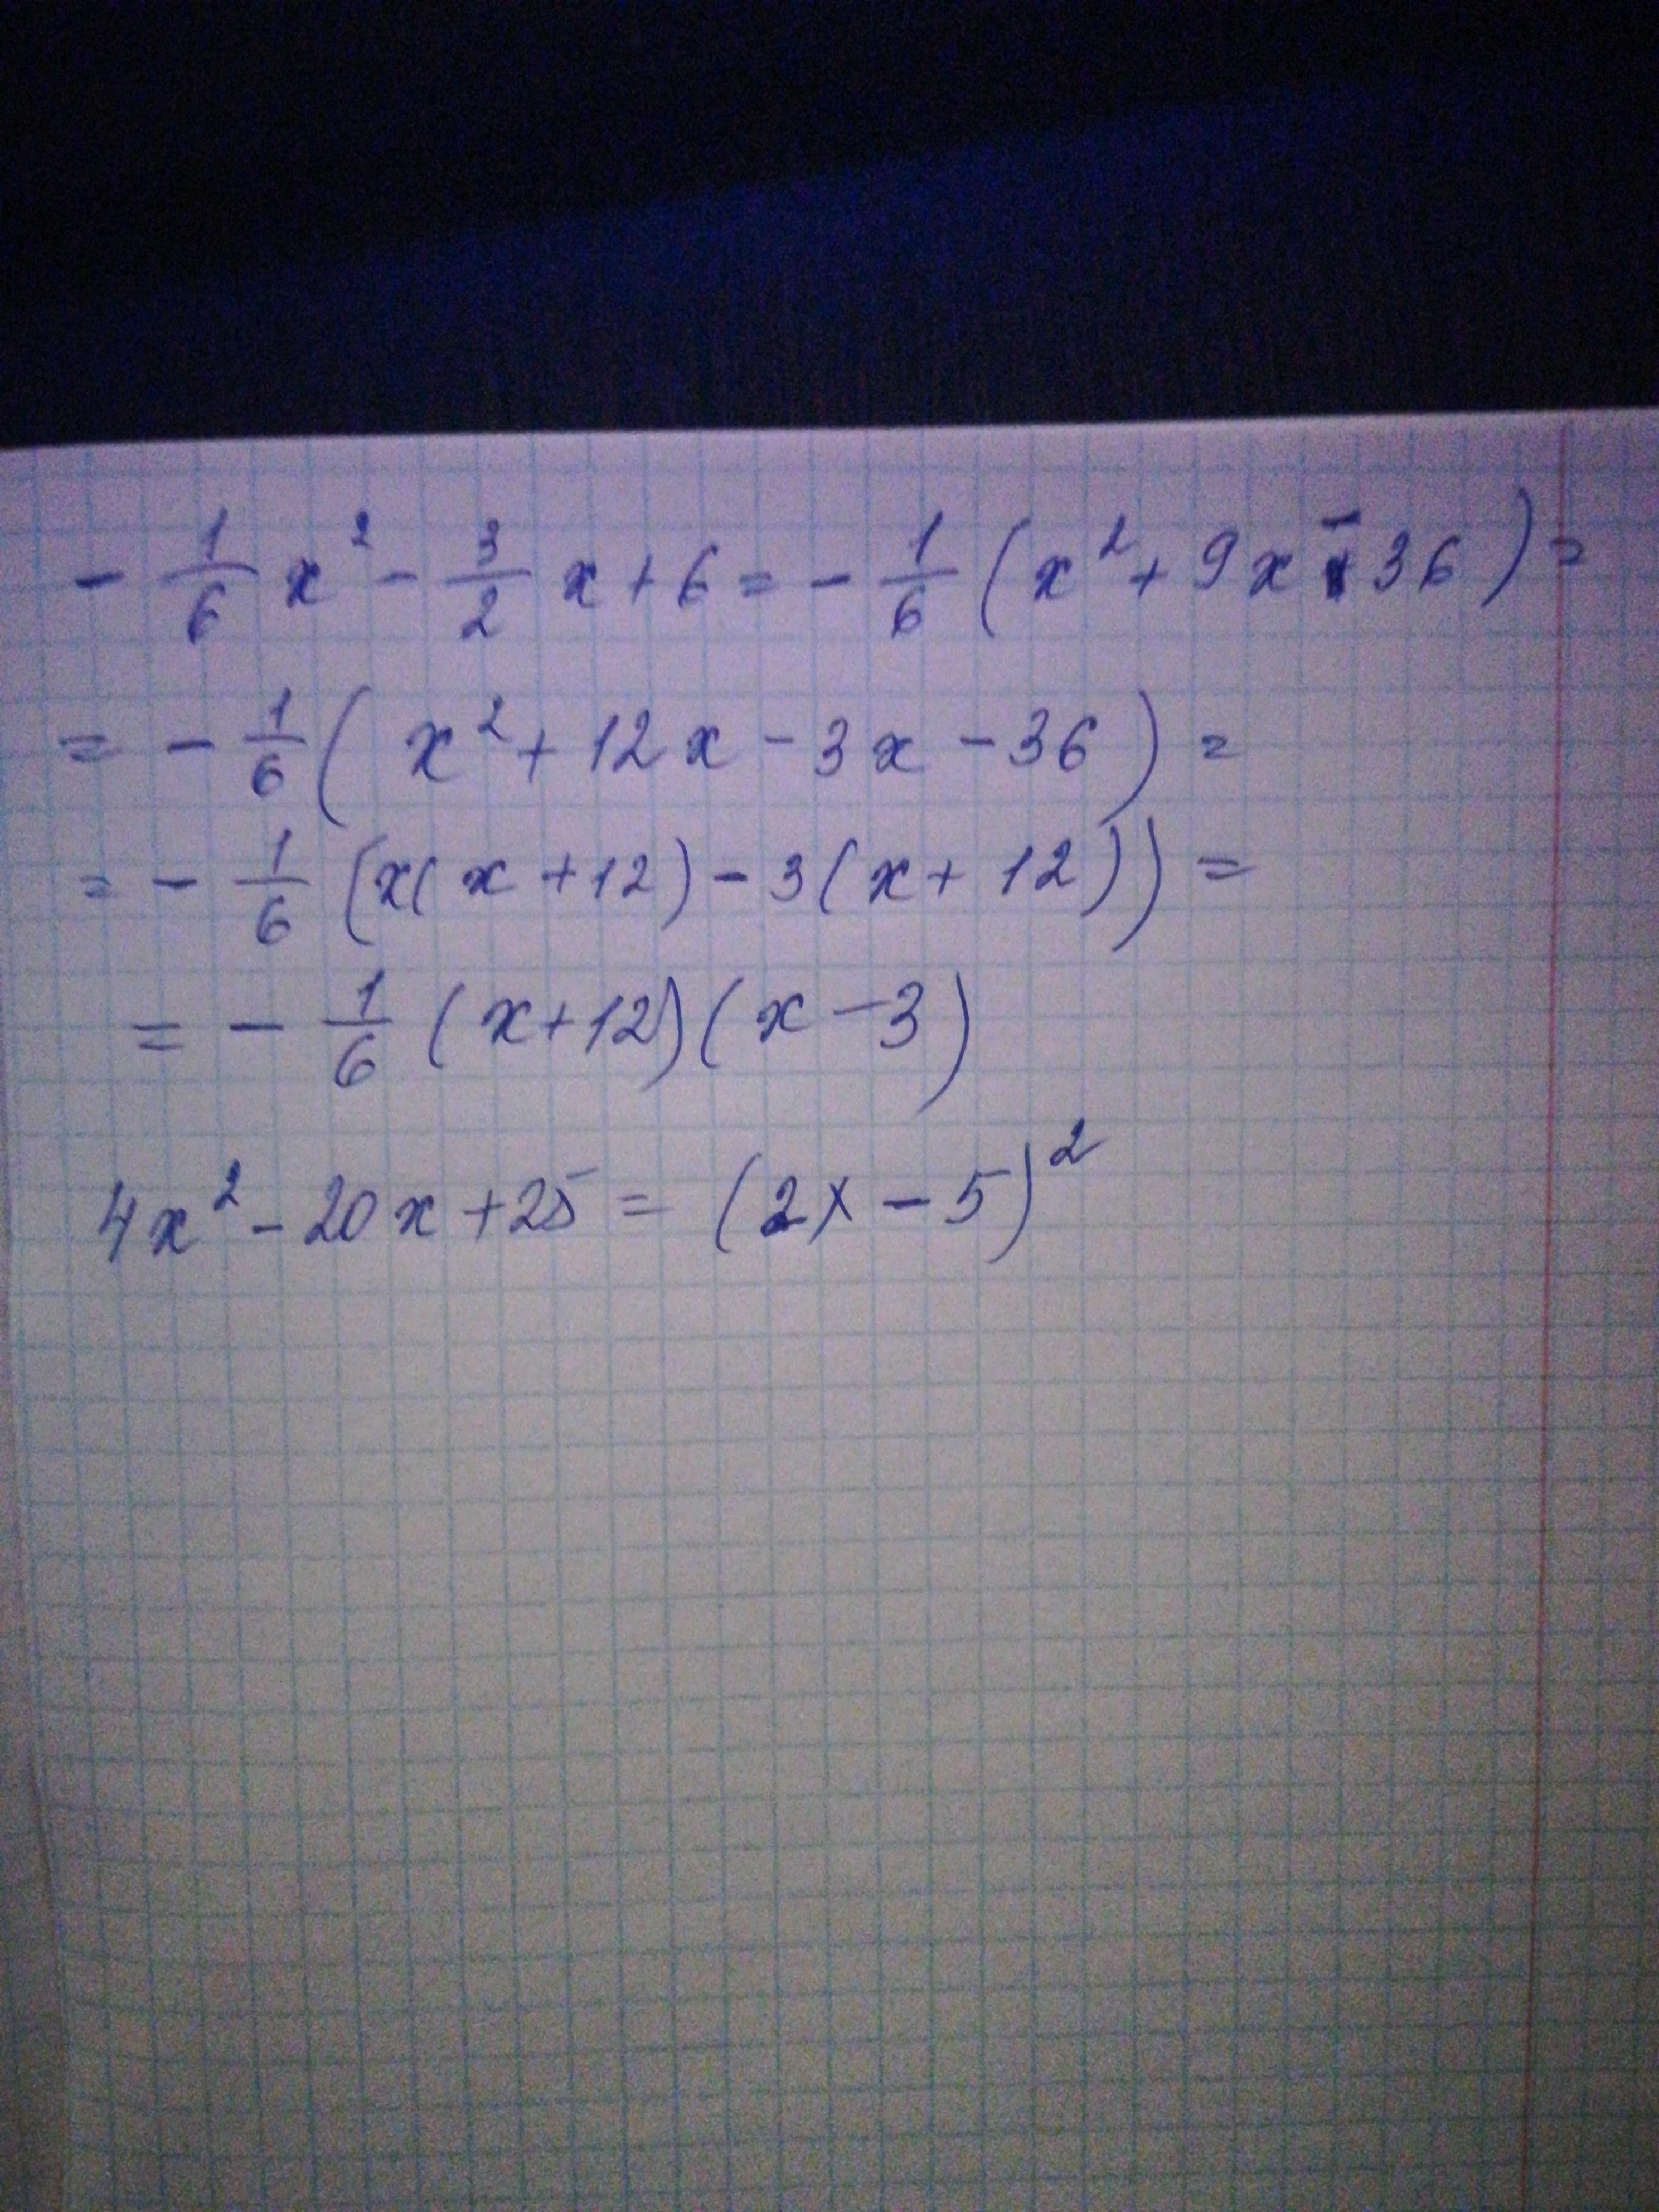 - 1/6 x² - 3/2 x + 6 = - 1/6 (x² + 9x - 36) =
= - 1/6 ( x² + 12x - 3x - 36 ) =
= - 1/6 (x( x + 12) - 3( x + 12)) =
= - 1/6 ( x + 12) ( x - 3)
4x² - 20x + 25 = (2x - 5)²